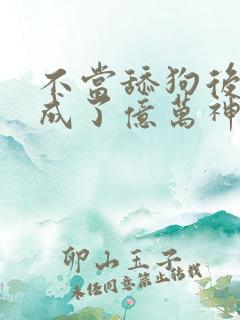 不當舔狗後
成了億萬神
卯山玉子
未經同意禁止轉載